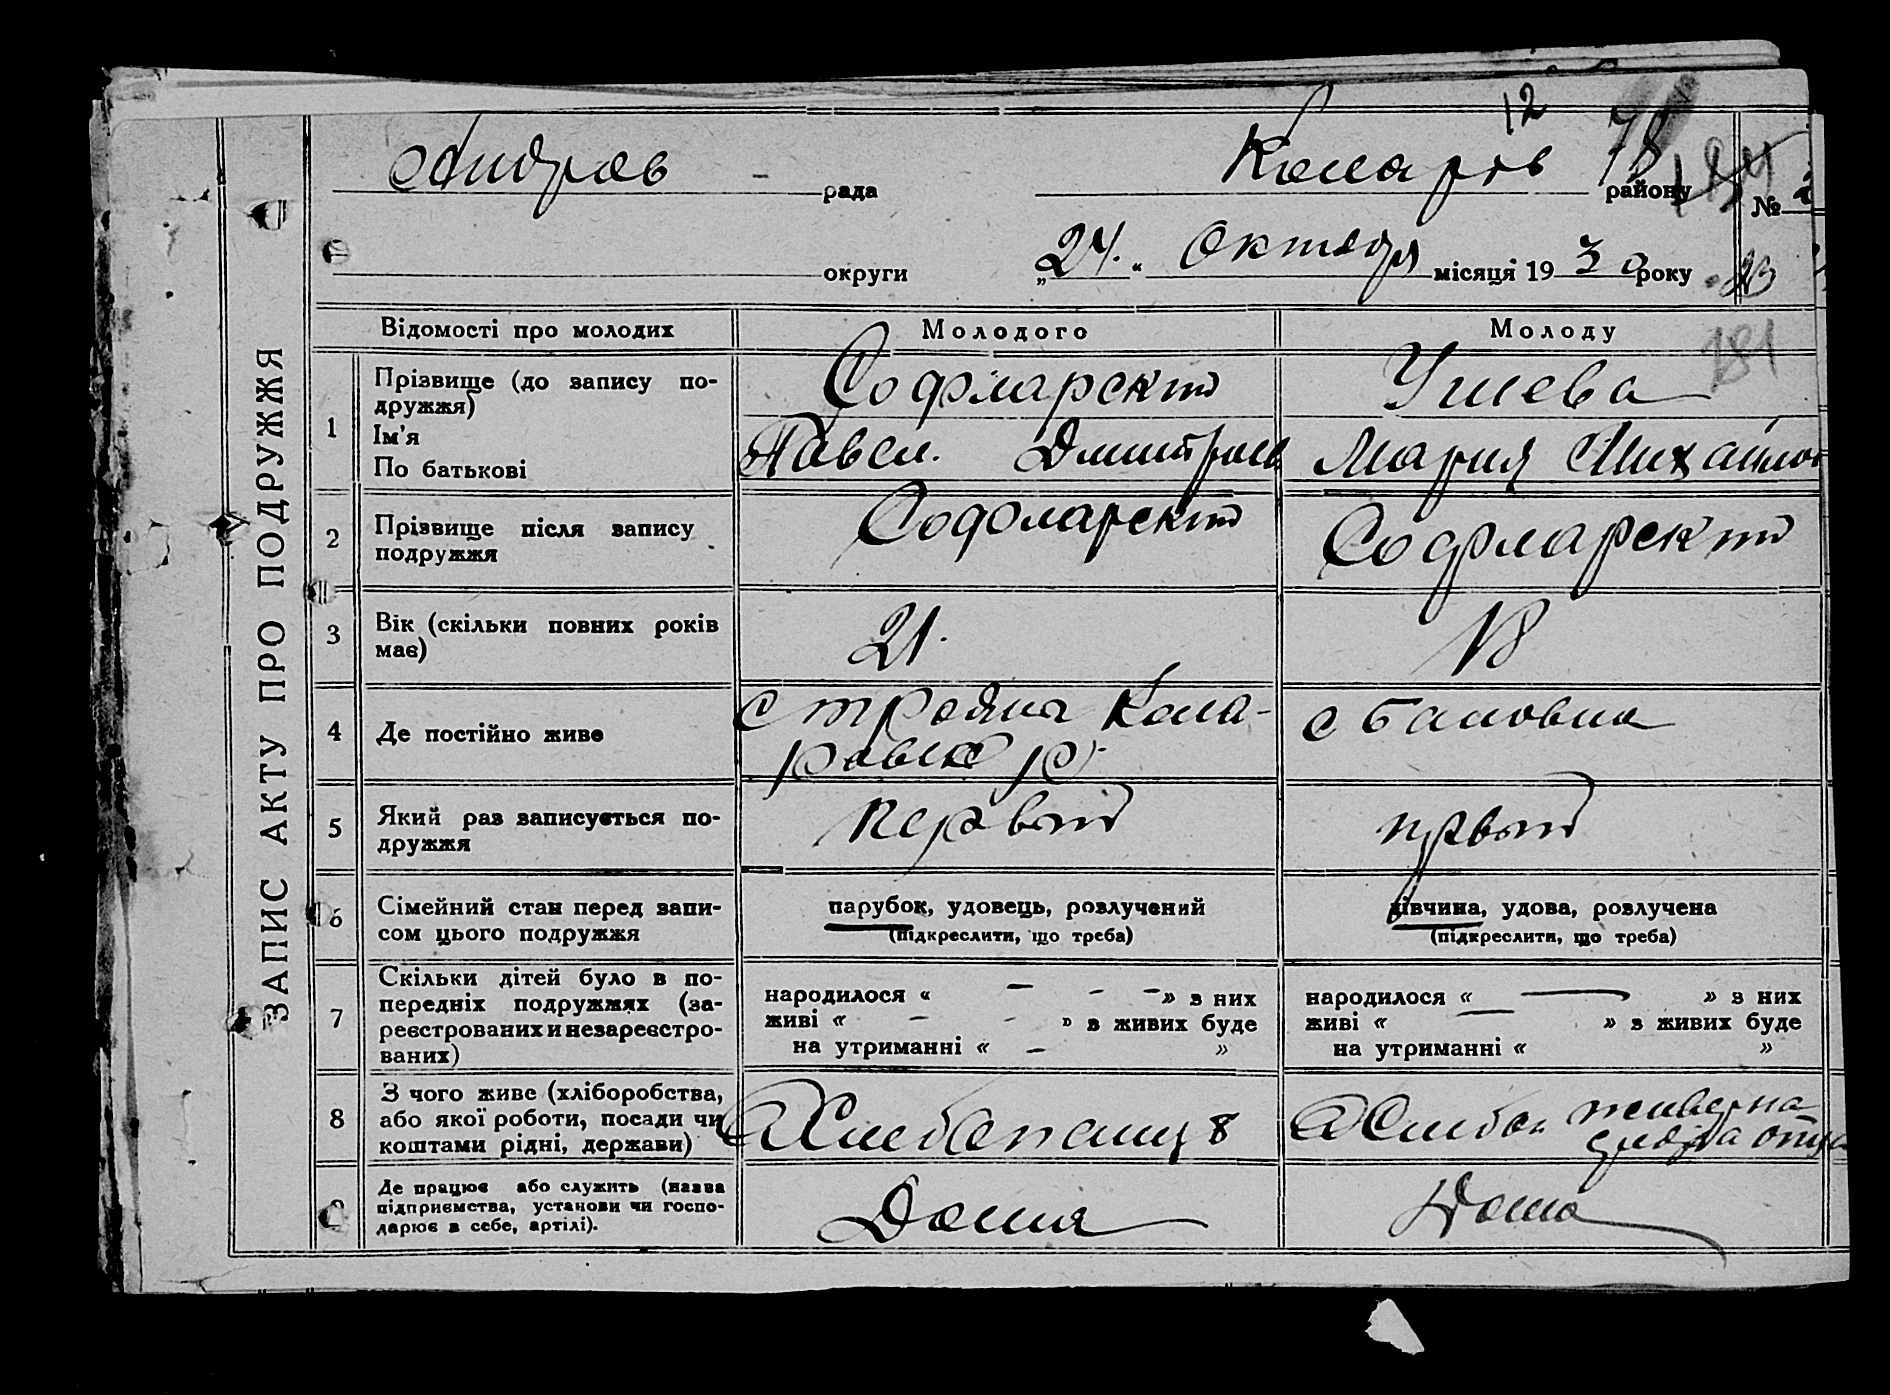 12
Андров рада Колар�ів району 78 184 №
округи „24." Октября місяця 1930 року 23
ЗАПИС АКТУ ПРО ПОДРУЖЖЯ
Відомості про молодих Молодого Молоду 181
1 Прізвище (до запису по-
дружжя) Софмаркт Ушева
Ім'я
По батькові Павел. Дмитров Мария Михайлов
2 Прізвище після запису
подружжя
3 Вік (скільки повних років
має) 21. 18
4 Де постійно живе с Трояна Кола-
ровск р. с Бановка
5 Який раз записується по-
дружжя первый первый
6 Сімейний стан перед запи-
сом цього подружжя
парубок, удовець, розлучений
(підкреслити, що треба)
дівчина, удова, розлучена
(підкреслити, що треба)
7 Скільки дітей було в по-
передніх подружжях (за-
реєстрованих и незареєстро-
ваних)
народилося « — - - » з них
живі « - - » в живих буде
на утриманні « - »
народилося « — » з них
живі « — » з живих буде
на утриманні « »
8 З чого живе (хліборобства,
або якої роботи, посади чи
коштами рідні, держави)
9 Де працює або служить (назва
підприємства, установи чи госпо-
дарює в себе, артілі). Дома Дома